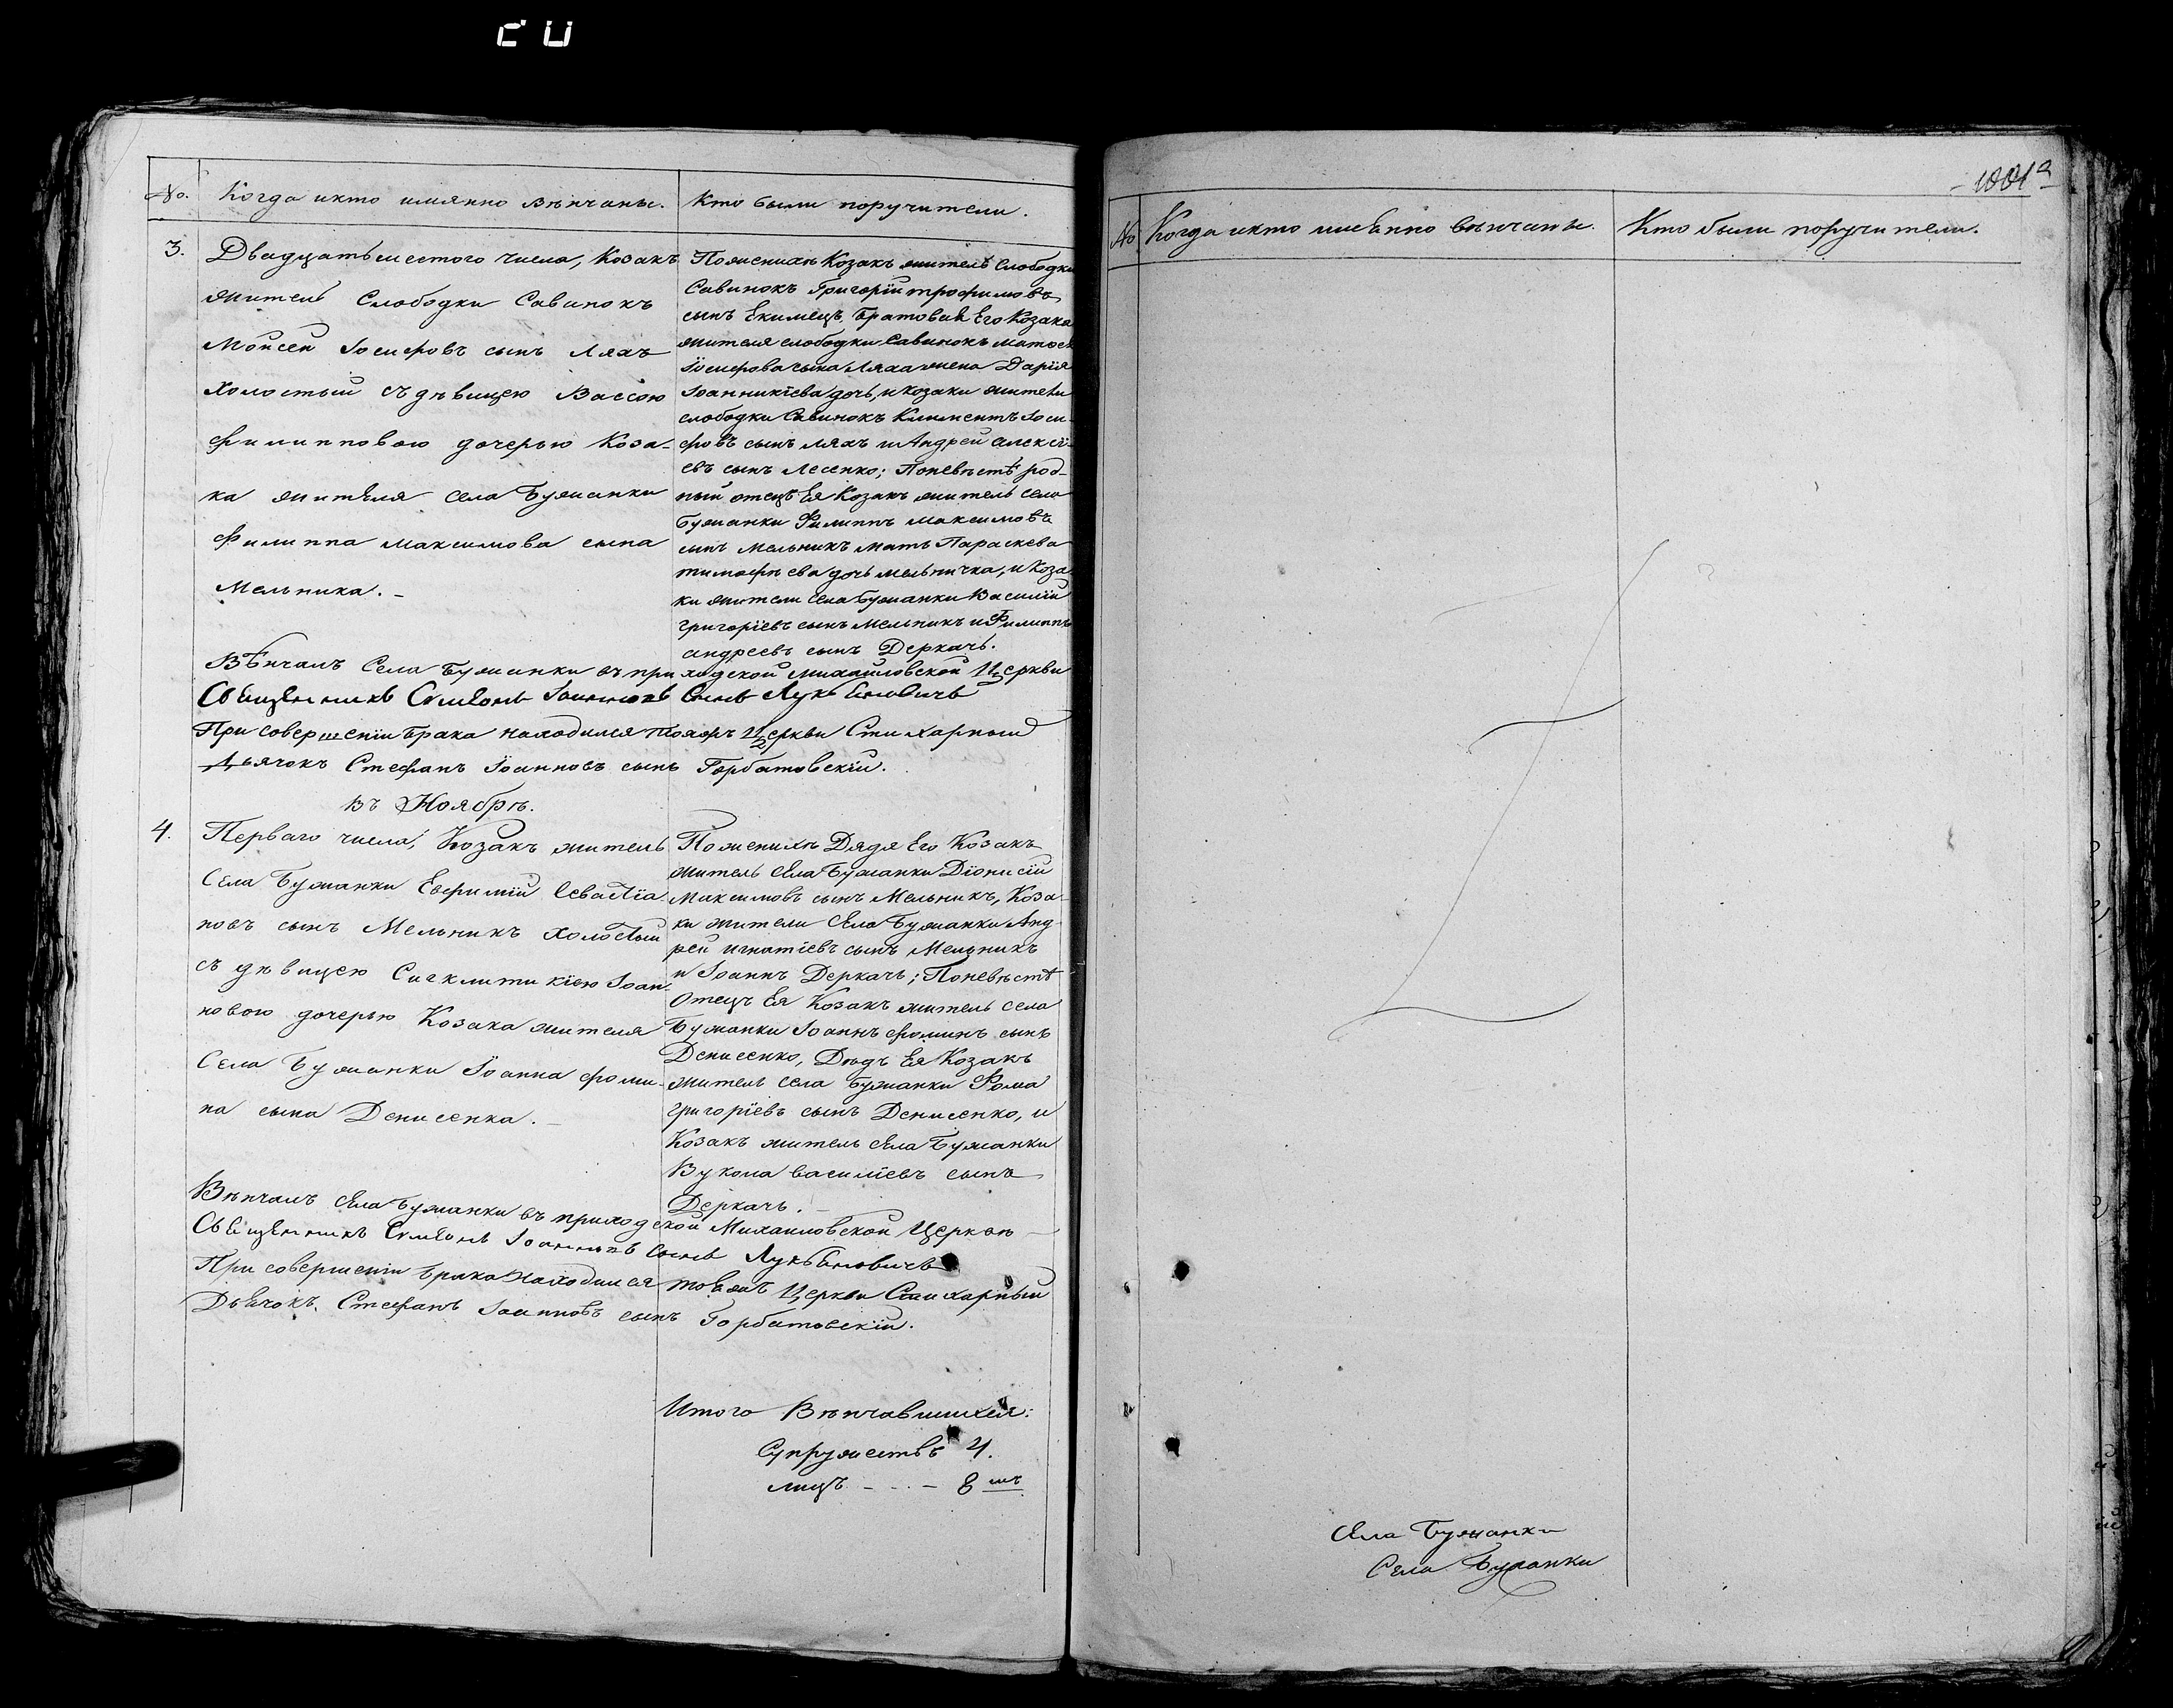 No.
Когда икто имянно вѣнчаны.
Кто были поручители.
3.
Двадцать шестого числа, Козакъ
житель Слободки Савинокъ
Моисей Іосифовъ сынъ Ляхъ
холостый съ дѣвицею Вассою
Филипповою дочерью Коза-
ка жителя села Бужанки
Филиппа Максимова сына
Мельника. -
Поженихѣ Козакъ житель Слободки
Савинокъ Григорій трофимовъ
сынъ Екимецъ, братовая Его Козака
жителя слободки Савинокъ матѳея
Іосифова сына Ляха жена Дарія
Іоанникіева дочь, и козаки жители
слободки Савинокъ Климентъ Іоси-
фовъ сынъ ляхъ и Андрей алексѣ-
евъ сынъ Лесенко; Поневѣстѣ род-
ный отецъ Ея Козакъ житель села
Бужанки Филиппъ максимовъ
сынъ мельникъ мать Параскева
тимофѣева дочь мельничка, и Коза-
ки жители села Бужанки Василій
григоріевъ сынъ Мельникъ и Филиппъ
андреевъ сынъ Деркачь.
Вѣнчалъ Села Бужанки въ приходской михайловской Церкви
Священникъ Симеонъ Іоанновъ Сынъ Лукьяновичъ
При совершеніи брака находился тояжъ Церкви Стихарный
Дьячокъ Стефанъ Іоанновъ сынъ Горбатовскій.
въ Ноябрѣ.
4.
Перваго числа, Козакъ житель
Села Бужанки Евфимій Севастіа-
новъ сынъ Мельникъ холостый
съ дѣвицею Сигклитикіею Іоан-
новою дочерью Козака жителя
Села Бужанки Іоанна фоми-
на сына Денисенка. -
Поженихѣ Дядя Его Козакъ
житель села Бужанки Діонисій
Максимовъ сынъ Мельникъ, Коза-
ки жители села Бужанки Анд-
рей игнатіевъ сынъ Мельникъ
и Іоаннъ Деркачь; Поневѣстѣ
Отецъ Ея Козакъ житель села
Бужанки Іоаннъ фоминъ сынъ
Денисенко, Дѣдъ Ея Козакъ
житель села Бужанки Фома
григоріевъ сынъ Денисенко, и
Козакъ житель села Бужанки
Вукола василіевъ сынъ
Деркачь. -
Вѣнчалъ села Бужанки въ приходской Михаиловской Церквѣ
Священникъ Симеонъ Іоанновъ Сынъ Лукьяновичъ
При совершеніи брака находился тояжъ Церкви Стихарный
Дьячокъ Стефанъ Іоанновъ сынъ Горбатовскій.
Итого Вѣнчавшихся:
Супружествъ 4.
лицъ - - - 8мъ
- 1001 а
No
Когда икто имѣнно вѣнчаны.
Кто были поручители.
Села Бужанки
Села Бужанки